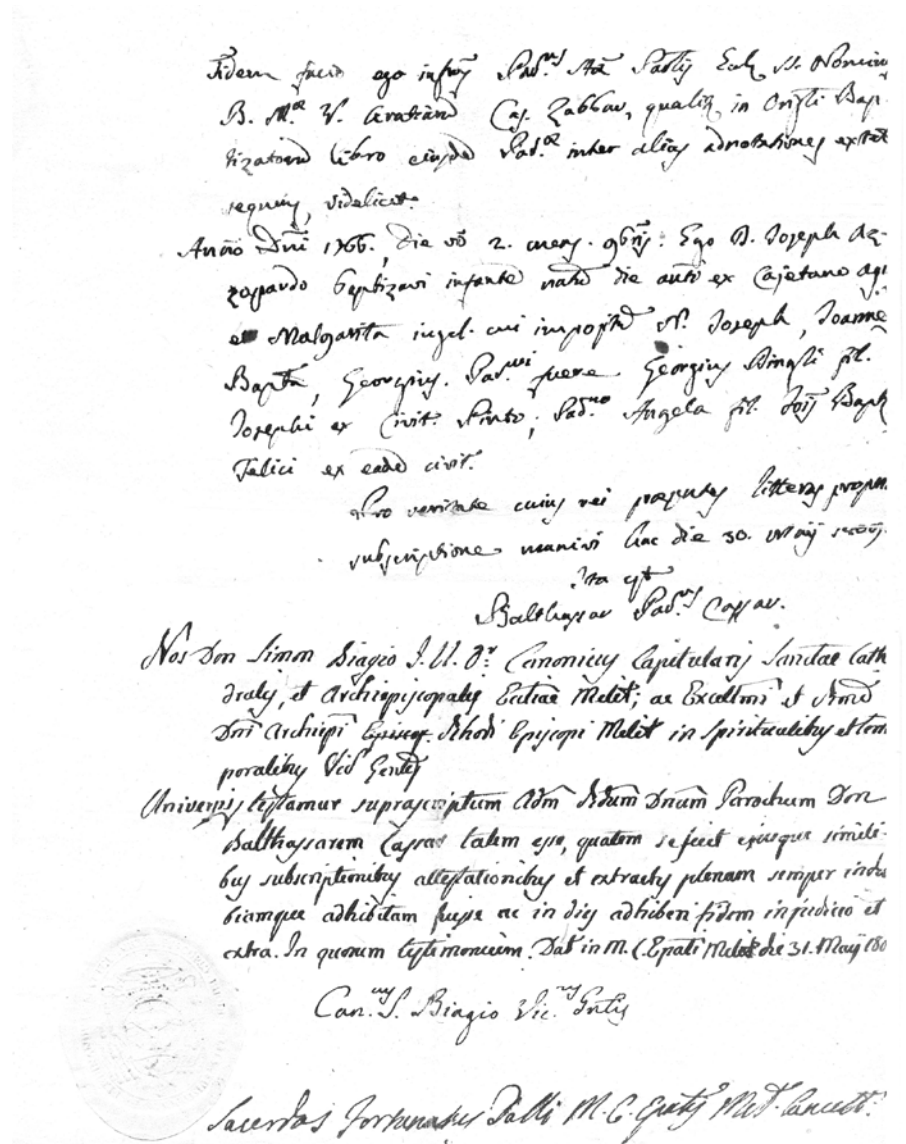 Fidem facio ego infrũs Par.us Ecc. SS. Nominis
B. M.æ V. Gratiarũ Cas. Zabbar, qualiter in Origli Bap
tizatorũ libro eiusdẽ Par.æ inter alias adnotationes extat
sequens, videlicet.
Anno Dñi 1766. die vo 2. mens. 9bris. Ego D. Joseph Az-
zopardo baptizavi infantẽ natũ die ex Cajetano
et Malgarita iugal. cui impositũ N. Joseph, Joannes
Bapta, Georgius. Pad.ni fuere Georgius fil.
Josephi ex Civit. Pinto, Pad.no Angela fil. Jois Bapte
Felici ex eadẽ civit.
Pro veritate cuius rei præsentes litteras propria
subscriptione munivi hac die 30. Maij
Ita est
Balthassar Par.us Cassar.
Nos Don Simon Biagio J. U. Dr. Canonicus Capitularis Sanctae Cath
dralis, et Archiepiscopalis Ecclae Melit; ac Excellmi et Rmi
Dñi Archiepi Episcop. Rhodi Episcopi Melit in Spiritualibus et tem
poralibus Vic Gentis
Universis testamur suprascriptum Adm Rdum Dnum Parochum Don
Balthassarem Cassar talem esse, qualem se fecit ejusque simili-
bus subscriptionibus attestationibus et extractis plenam semper indu
biamque adhibitam fuisse ac in dies adhiberi fidem in judicio et
extra. In quorum testimonium. Dat in M. C. Epali Melit die 31. Maij 180
Can.cus S. Biagio Vic.us Gnlis
Sacerdos Fortunatus Dalli M. C. Epalis Melit. Cancell.